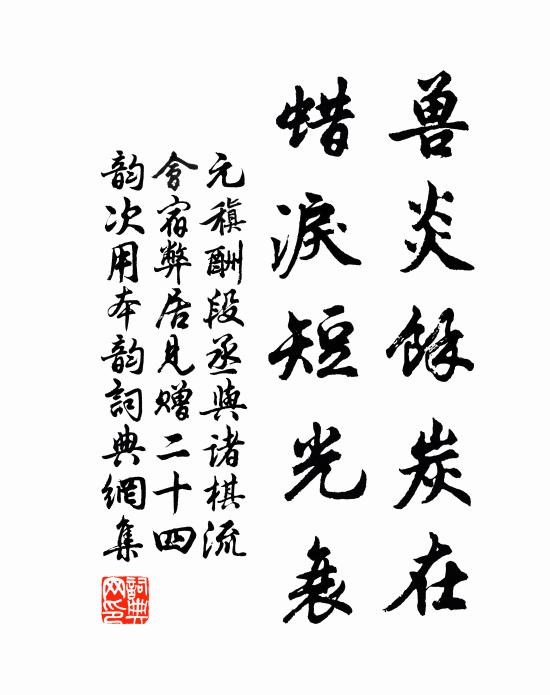 兽炎馀炭在
蜡淚短光衰
元稹酬段丞與诸棋流
會宿弊居見赠二十四
韵次用本韵詞典網集
詞典
网印